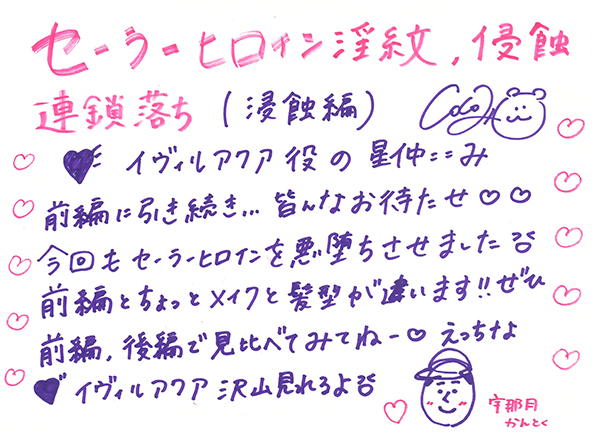 セーラーヒロイン淫紋,侵蝕
連鎖落ち (浸蝕編)
イヴィルアクア役の星仲ここみ
前編に引き続き…皆んなお待たせ♡♡
今回もセーラーヒロインを悪堕ちさせました
前編とちょっとメイクと髪型が違います!!ぜひ
前編,後編で見比べてみてねー♡ えっちな
イヴィルアクア沢山見れるよ
宇那月
かんとく